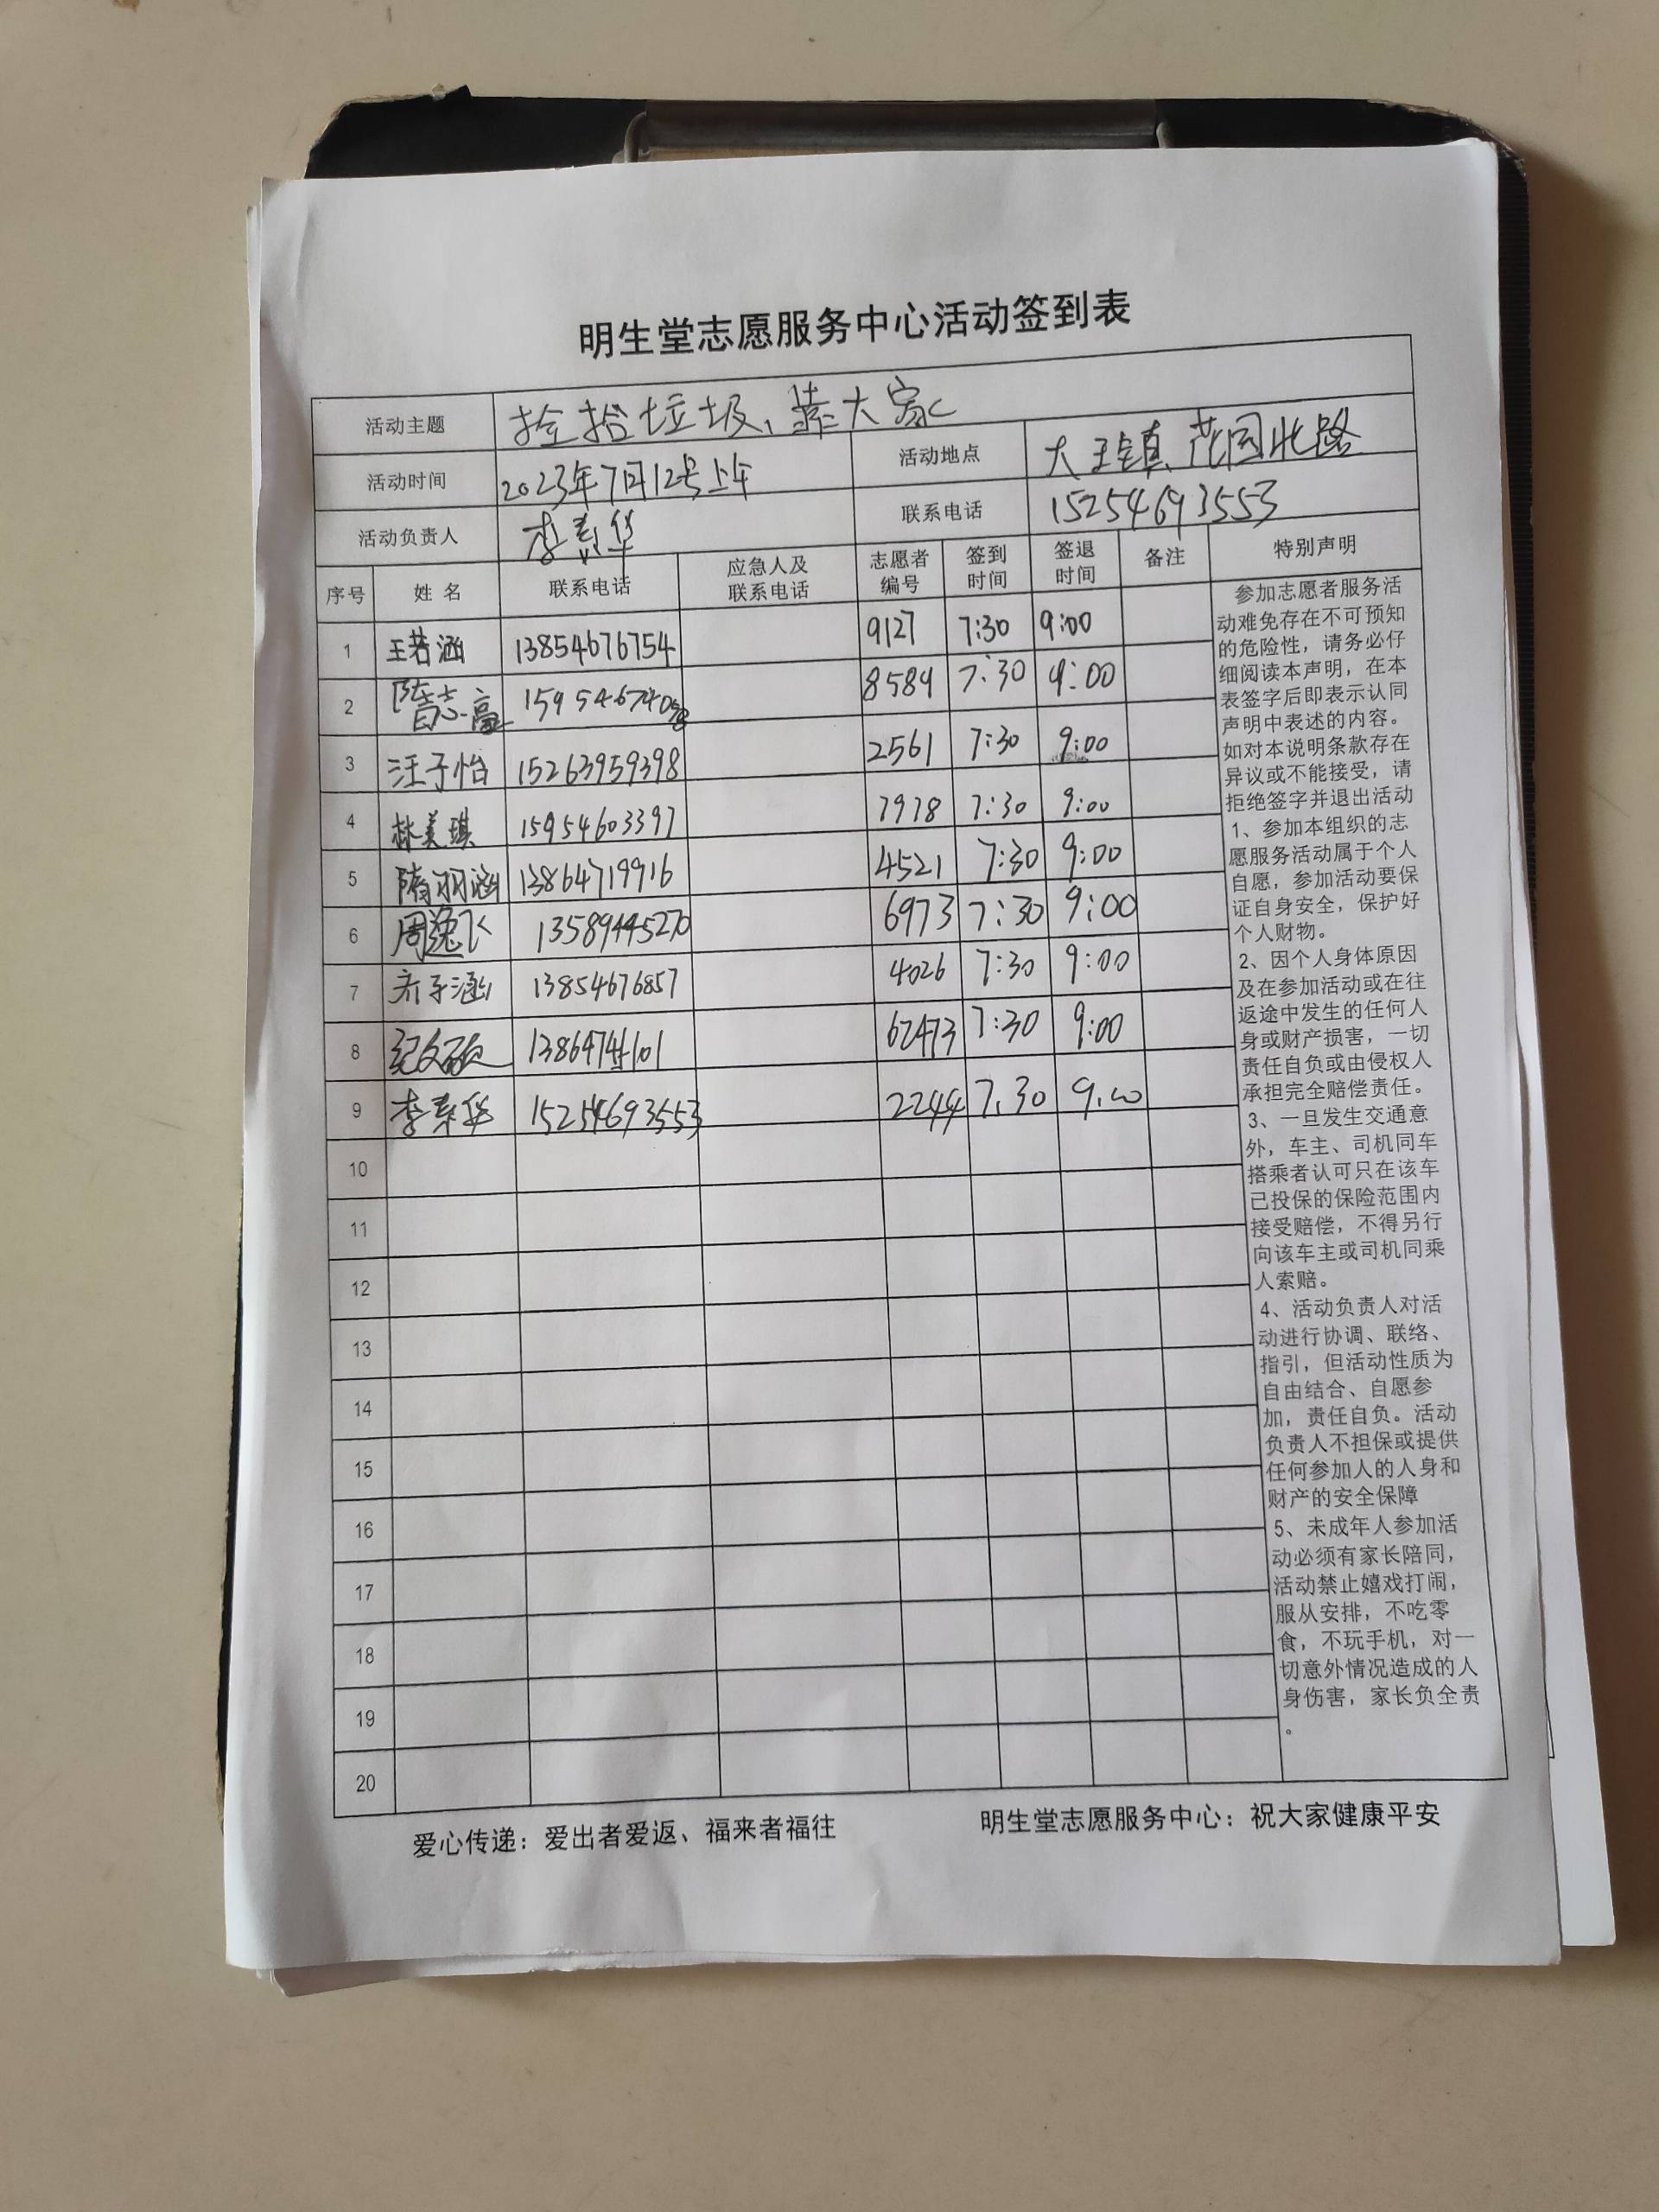 明生堂志愿服务中心活动签到表
活动主题 捡拾垃圾、靠大家
活动时间 2023年7月12号上午 活动地点 大王镇茂园北路
活动负责人 李 华 联系电话 15254693553
序号 姓 名 联系电话 应急人及联系电话 志愿者编号 签到时间 签退时间 备注 特别声明
1 王若涵 13854676754 9127 7:30 9:00
2 志高 8589 7:30 9:00
3 汪子怡 15263959398 2561 7:30 9:00
4 林美琪 15954603397 7978 7:30 9:00
5 隋羽涵 13864719916 4521 7:30 9:00
6 周逸飞 13589445270 6973 7:30 9:00
7 齐子涵 13854676857 4026 7:30 9:00
8 纪文硕 62473 7:30 9:00
9 李 华 15254693553 2244 7.30 9.00
10
11
12
13
14
15
16
17
18
19
20
参加志愿者服务活
动难免存在不可预知
的危险性，请务必仔
细阅读本声明，在本
表签字后即表示认同
声明中表述的内容。
如对本说明条款存在
异议或不能接受，请
拒绝签字并退出活动
1、参加本组织的志
愿服务活动属于个人
自愿，参加活动要保
证自身安全，保护好
个人财物。
2、因个人身体原因
及在参加活动或在往
返途中发生的任何人
身或财产损害，一切
责任自负或由侵权人
承担完全赔偿责任。
3、一旦发生交通意
外，车主、司机同车
搭乘者认可只在该车
已投保的保险范围内
接受赔偿，不得另行
向该车主或司机同乘
人索赔。
4、活动负责人对活
动进行协调、联络、
指引，但活动性质为
自由结合、自愿参
加，责任自负。活动
负责人不担保或提供
任何参加人的人身和
财产的安全保障
5、未成年人参加活
动必须有家长陪同，
活动禁止嬉戏打闹，
服从安排，不吃零
食，不玩手机，对一
切意外情况造成的人
身伤害，家长负全责
。
爱心传递：爱出者爱返、福来者福往 明生堂志愿服务中心：祝大家健康平安